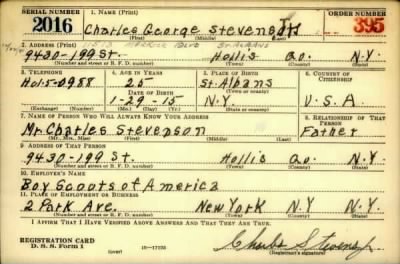 SERIAL NUMBER 1. NAME (Print) ORDER NUMBER
2016 Charles George Stevenson Jr 395
(First) (Middle) (Last)
2. ADDRESS (Print) 11513 Merrick Blvd St. Albans
9430-199 St. Hollis Qo. N.Y.
(Number and street or R. F. D. number) (Town) (County) (State)
3. TELEPHONE 4. AGE IN YEARS 5. PLACE OF BIRTH 6. COUNTRY OF CITIZENSHIP
Hol5-0988 25 St. Albans
DATE OF BIRTH (Town or county)
1-29-15 N.Y. U.S.A
(Exchange) (Number) (Mo.) (Day) (Yr.) (State or country)
7. NAME OF PERSON WHO WILL ALWAYS KNOW YOUR ADDRESS 8. RELATIONSHIP OF THAT PERSON
Mr. Charles Stevenson Father
(Mr., Mrs., Miss) (First) (Middle) (Last)
9. ADDRESS OF THAT PERSON
9430-199 St. Hollis Qo. N.Y.
(Number and street or R. F. D. number) (Town) (County) (State)
10. EMPLOYER'S NAME
Boy Scouts of America
11. PLACE OF EMPLOYMENT OR BUSINESS
2 Park Ave. New York N.Y N.Y.
(Number and street or R. F. D. number) (Town) (County) (State)
I AFFIRM THAT I HAVE VERIFIED ABOVE ANSWERS AND THAT THEY ARE TRUE.
REGISTRATION CARD
D. S. S. Form 1 (over) 16-17105 (Registrant's signature)